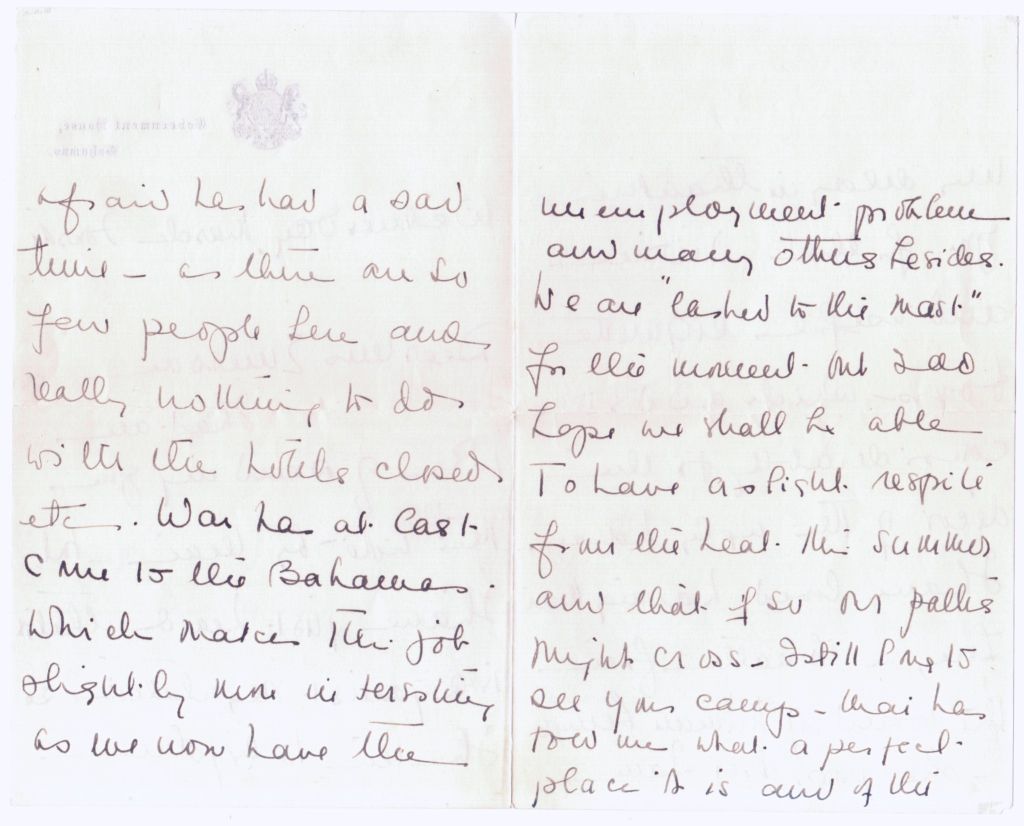 Government House,
Bahamas.
afraid he had a sad
time – as there are so
few people here and
really nothing to do
with the hotels closed
etc. War has at last
come to the Bahamas.
which makes the job
slightly more interesting
as we now have the
unemployment problem
and many others besides.
We are "lashed to the mast"
for the moment but I do
hope we shall be able
to have a slight respite
from the heat this summer
and that if so our paths
might cross – I still long to
see your camp – has
told me what a perfect
place it is and of the